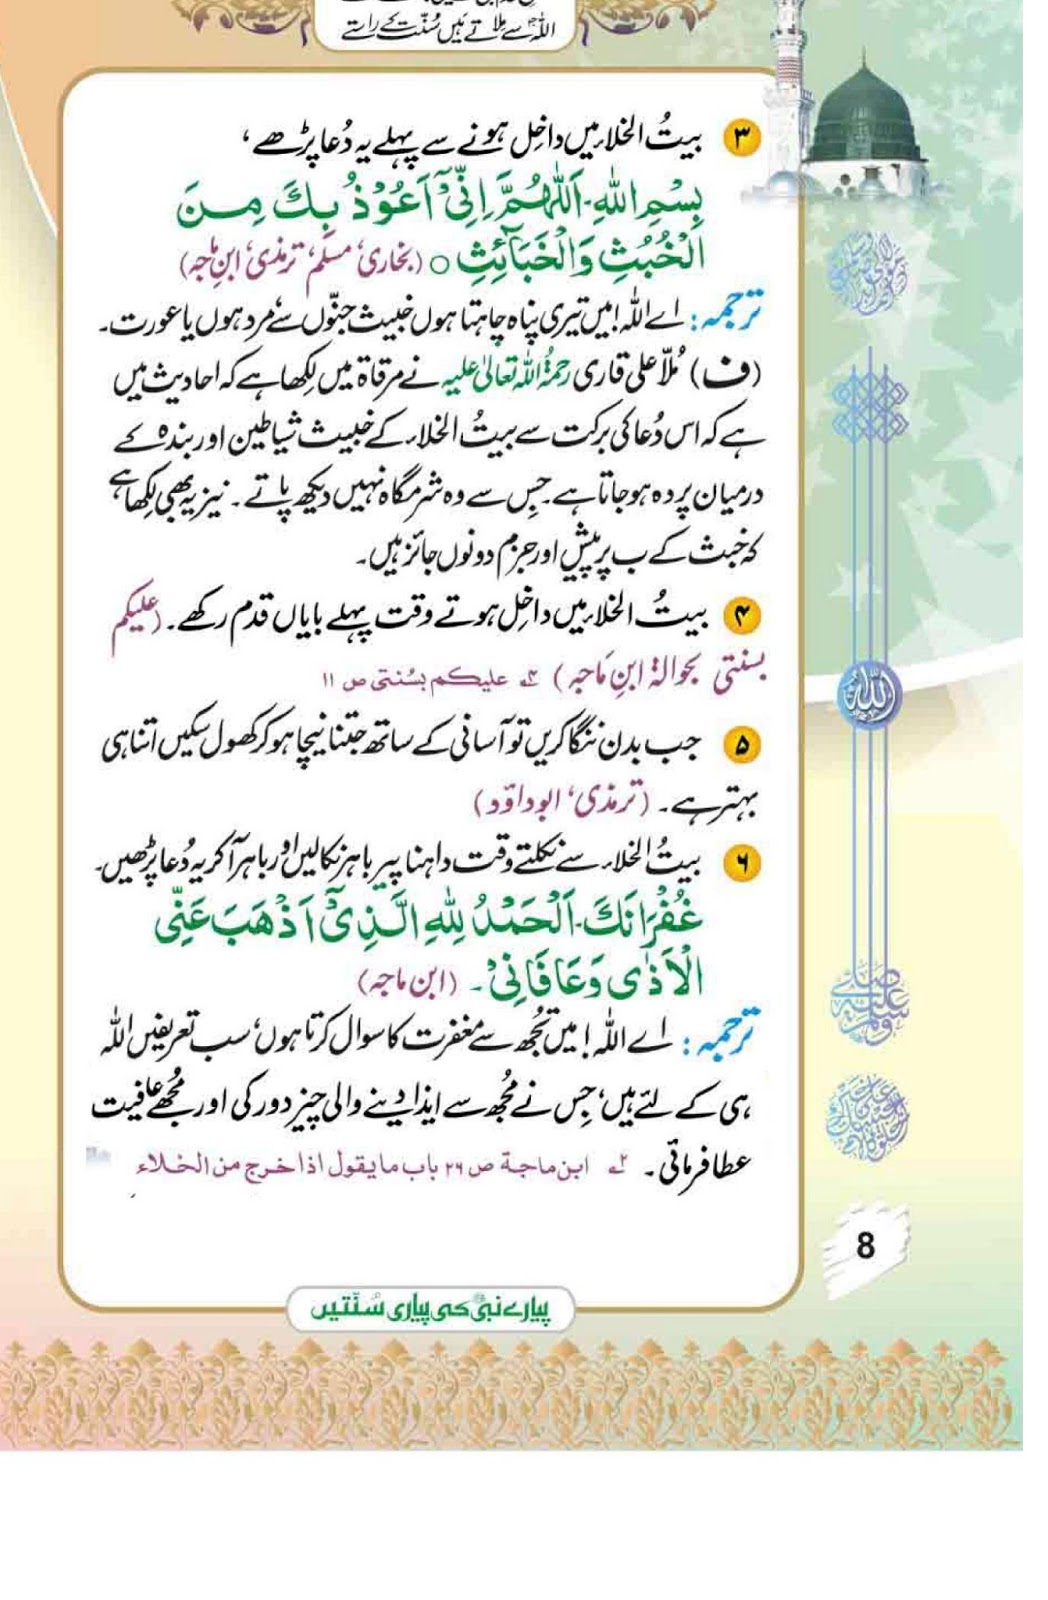 اللہ سے ملاتے ہیں سُنّت کے راستے
۳ بیتُ الخلاء میں داخل ہونے سے پہلے یہ دُعا پڑھے،
بِسْمِ اللّٰهِ۔ اَللّٰهُمَّ اِنِّیْٓ اَعُوْذُ بِكَ مِنَ
الْخُبُثِ وَالْخَبَآئِثِ ○ (بخاری، مسلم، ترمذی، ابنِ ماجہ)
ترجمہ: اے اللہ! میں تیری پناہ چاہتا ہوں خبیث جنّوں سے مرد ہوں یا عورت۔
(ف) مُلّا علی قاری رحمۃُ اللہ تعالیٰ علیہ نے مرقاۃ میں لکھا ہے کہ احادیث میں
ہے کہ اس دُعا کی برکت سے بیتُ الخلاء کے خبیث شیاطین اور بندہ کے
درمیان پردہ ہو جاتا ہے۔ جِس سے وہ شرمگاہ نہیں دیکھ پاتے۔ نیز یہ بھی لکھا ہے
کہ خبث کے ب پر پیش اور جزم دونوں جائز ہیں۔
۴ بیتُ الخلاء میں داخل ہوتے وقت پہلے بایاں قدم رکھے۔ (علیکم
بسنتی بحوالۂ ابنِ ماجہ) ۴؎ علیکم بسُنتی ص ۱۱
۵ جب بدن ننگا کریں تو آسانی کے ساتھ جتنا نیچا ہو کر کھول سکیں اتنا ہی
بہتر ہے۔ (ترمذی، ابوداؤد)
۶ بیتُ الخلاء سے نکلتے وقت داہنا پیر باہر نکالیں اور باہر آ کر یہ دُعا پڑھیں۔
غُفْرَانَكَ۔ اَلْحَمْدُ لِلّٰهِ الَّذِیْٓ اَذْهَبَ عَنِّی
الْاَذٰی وَعَافَانِیْ۔ (ابن ماجہ)
ترجمہ: اے اللہ! میں تجُھ سے مغفرت کا سوال کرتا ہوں، سب تعریفیں اللہ
ہی کے لئے ہیں، جِس نے مجُھ سے ایذا دینے والی چیز دور کی اور مجُھے عافیت
عطا فرمائی۔ ۲؎ ابن ماجة ص ۲۶ باب مایقول اذا خرج من الخلاء
اللّٰه
8
پیارے نبی ﷺ کی پیاری سُنّتیں